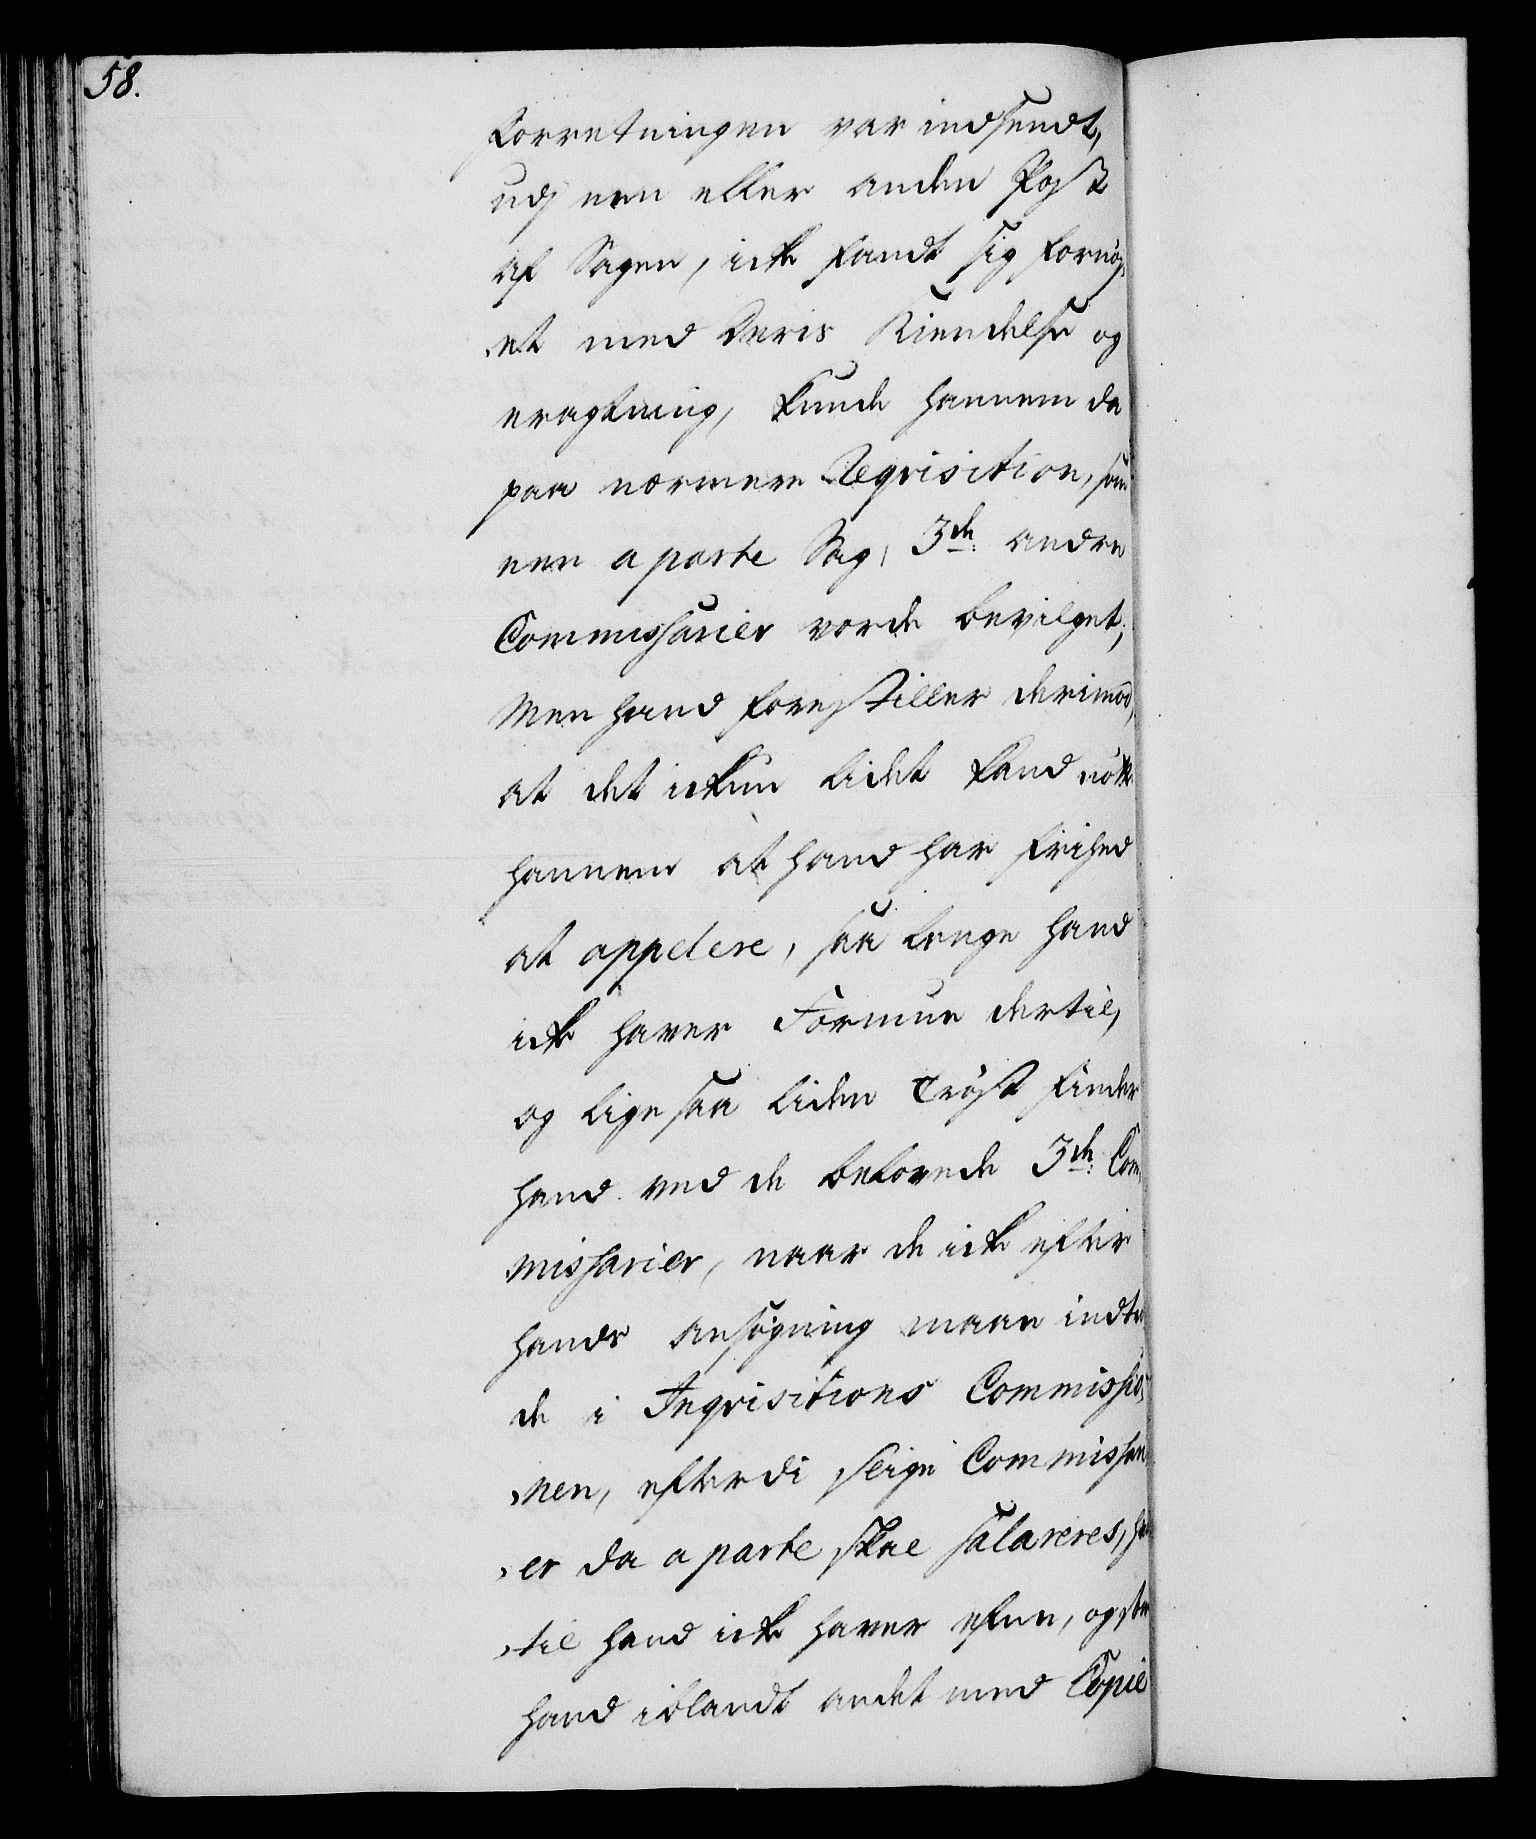 58.
Forretningen var indsendt,
udj een eller anden Post
af Sagen, icke fandt sig fornøy,
,et med deris Kiendelse og
eragtning, kunde hannem da
paa nermere Reqvisition, som
een a parte Sag, 3de: andre
Commissarier vorde bevilget;
Men hand forestiller derimod,
at det ickun lidet kand nøtte
hannem at hand har frihed
at appelere, saa lenge hand
icke haver Formue dertil,
og lige saa liden Trøst finder
hand ved de belovede 3de: Com,
missarier, naar de icke efter
hands ansøgning maae indtræ
de i Inqvisitions Commissio,
,nen, efterdi slige Commissari
,er da a parte skal salareres, hvor
,til hand icke haver efne, og
hand iblandt andet med Copie